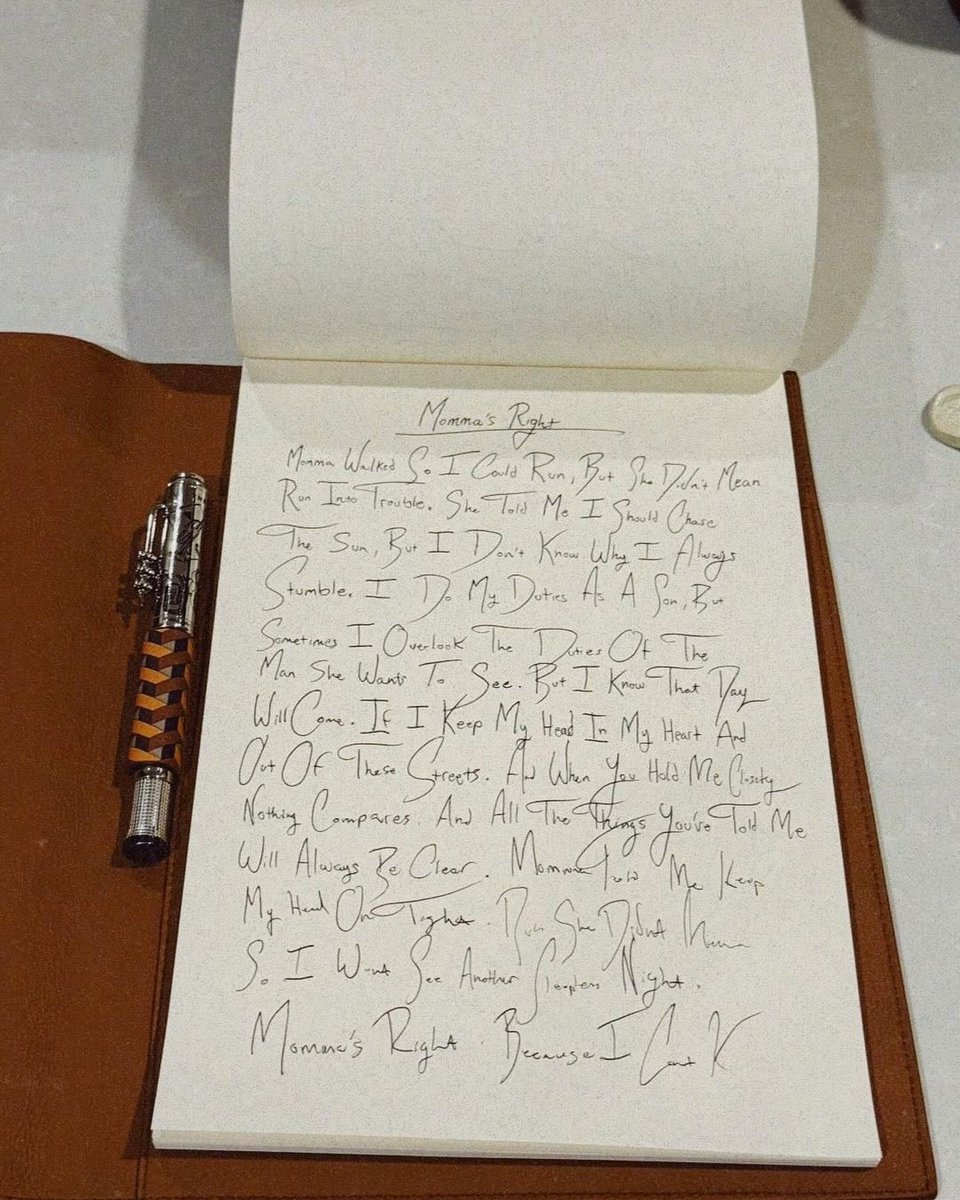 Momma's Right
Momma Walked So I Could Run, But She Didn't Mean
Run Into Trouble. She Told Me I Should Chase
The Sun, But I Don't Know Why I Always
Stumble. I Do My Duties As A Son, But
Sometimes I Overlook The Duties Of The
Man She Wants To See. But I Know That Day
Will Come. If I Keep My Head In My Heart And
Out Of These Streets. And When You Hold Me Closely
Nothing Compares. And All The Things You've Told Me
Will Always Be Clear. Momma Told Me Keep
My Head On Tight. But She Didn't
So I Wont See Another Sleepless Night.
Momma's Right. Because I Cant K